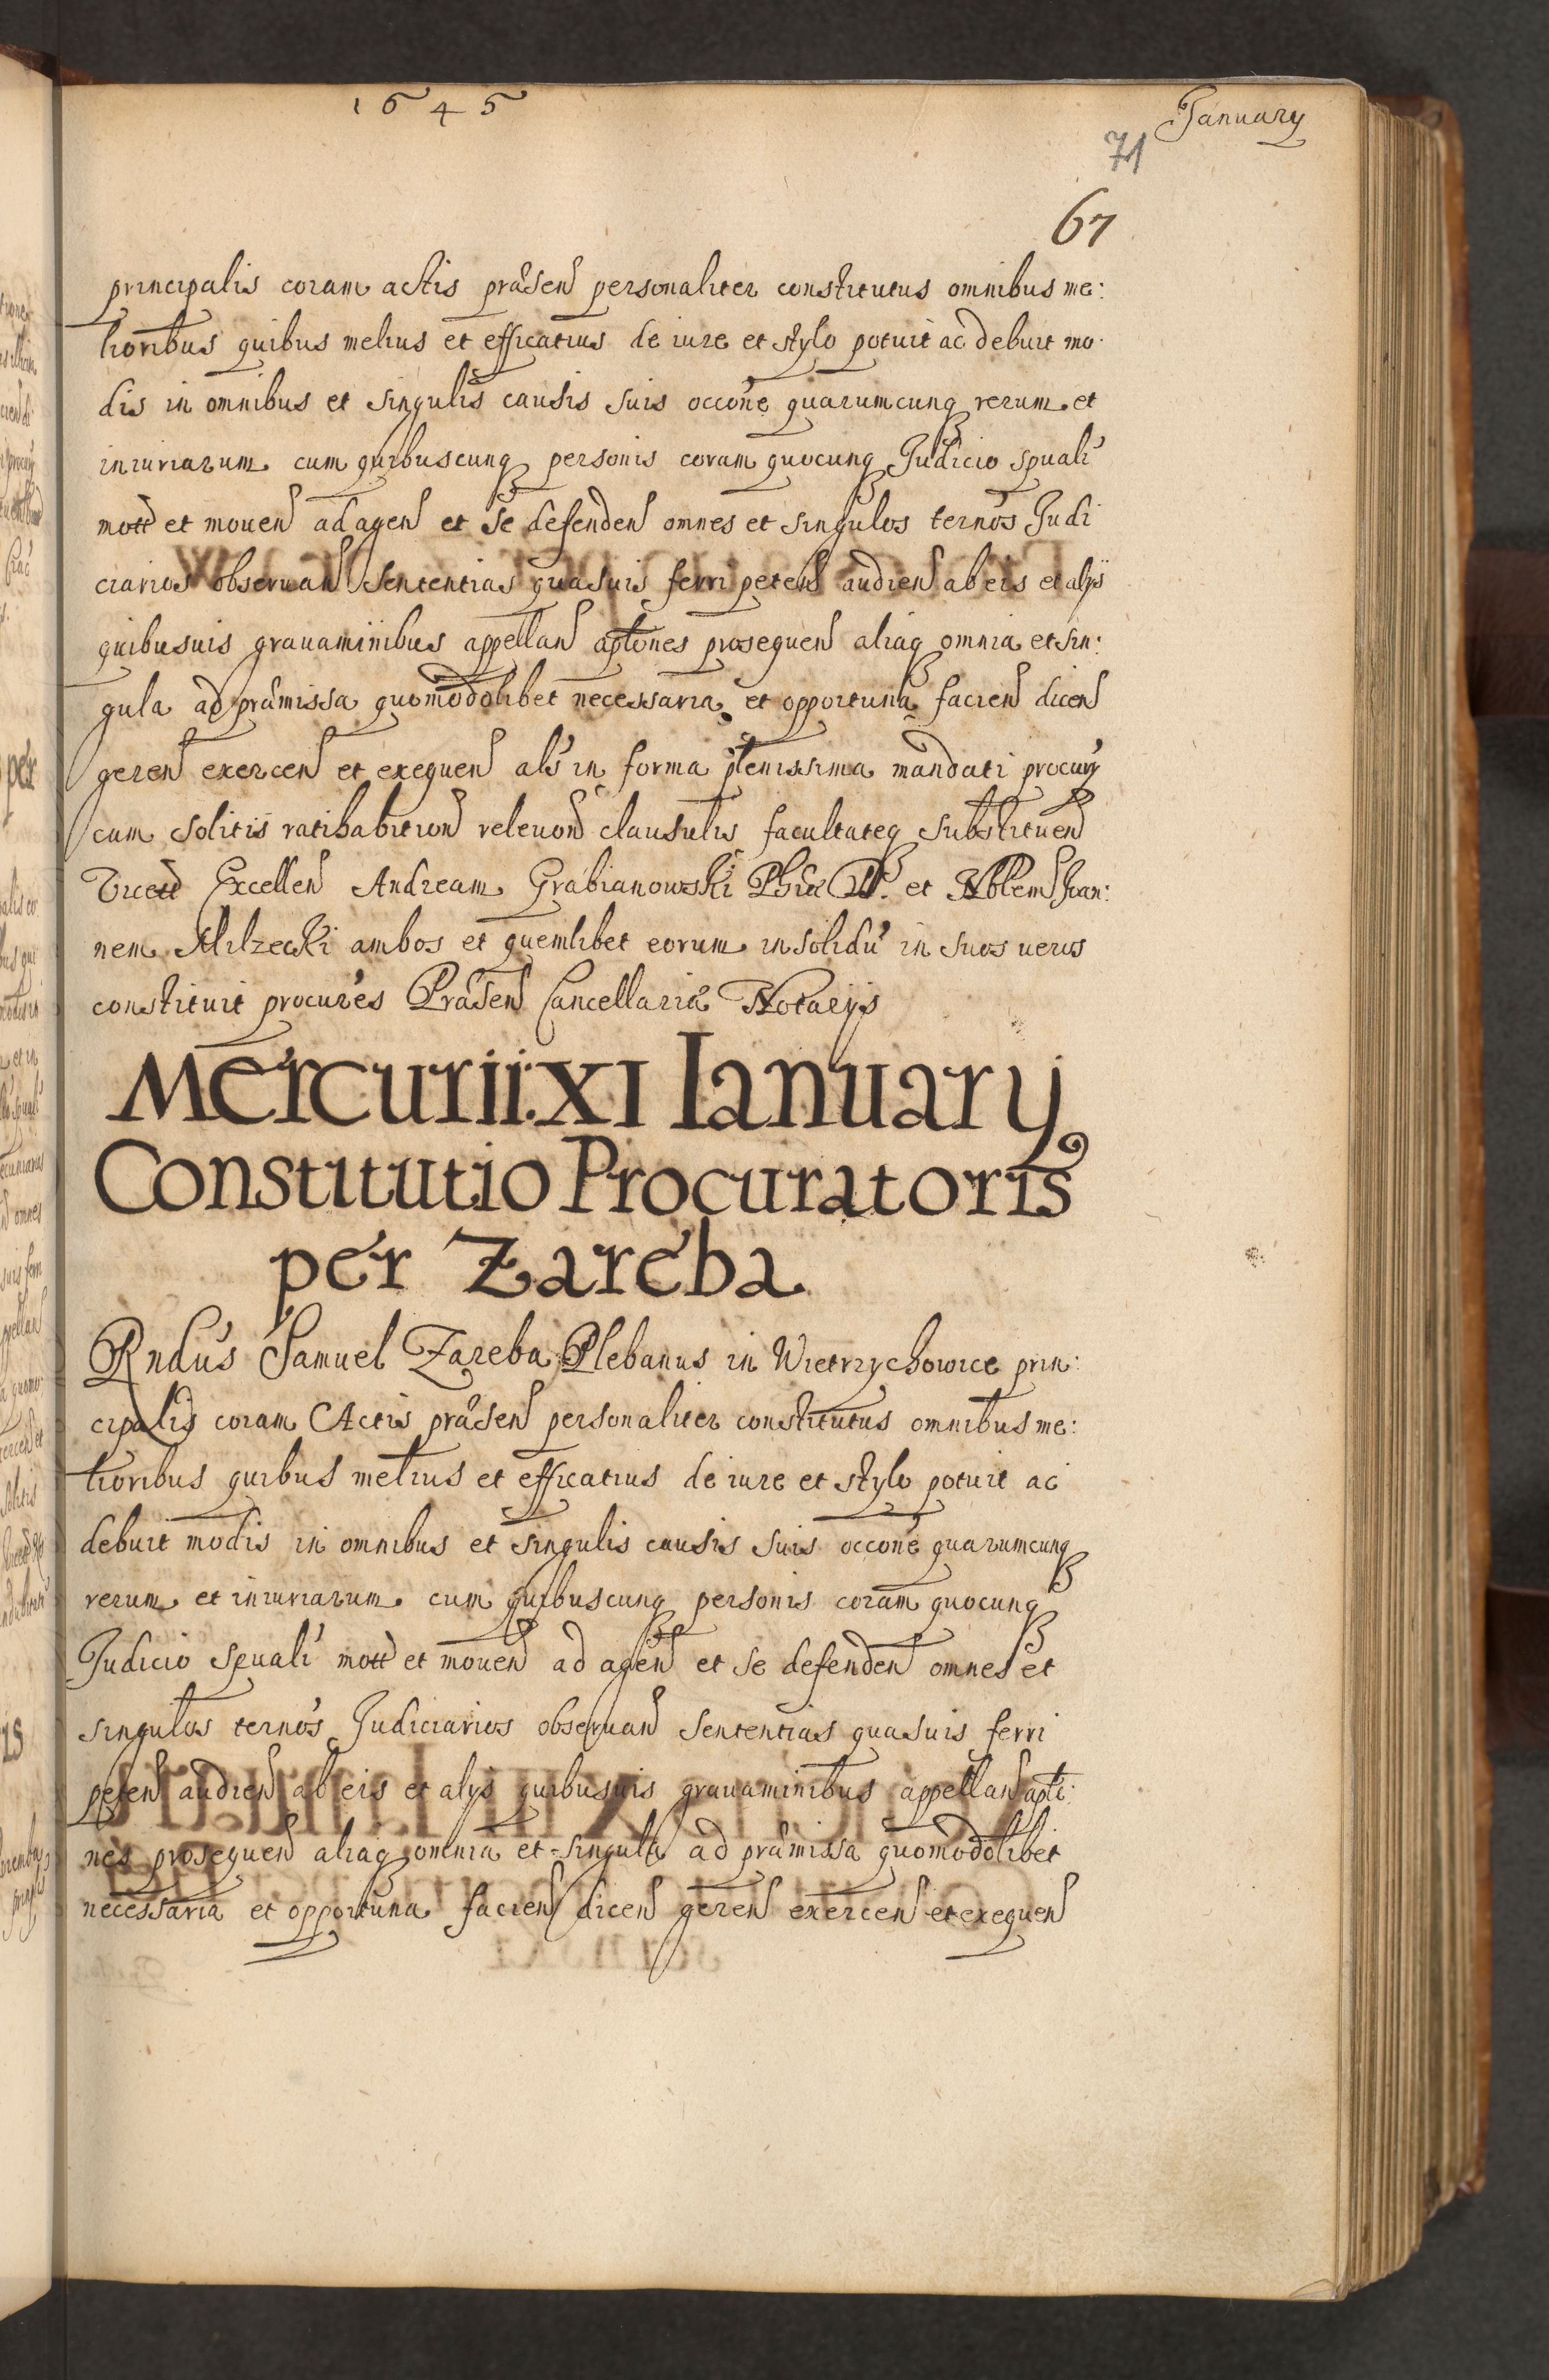 1645
January
71
67
principalis coram actis præsen personaliter constitutus omnibus me:
lioribus quibus melius et efficatius de iure et stylo potuit ac debuit mo
dis in omnibus et singulis causis suis occone quarumcunq rerum et
iniuriarum cum quibuscunq personis coram quocunq Judicio spuali
mott et mouen ad agen et se defenden omnes et singulos ternos Judi
ciarios obseruan sententias quasuis ferri peten audien ab eis et alys
quibusuis grauaminibus appellan aptones prosequen aliaq omnia et sin:
gula ad præmissa quomodolibet necessaria et opportuna facien dicen
geren exercen et exequen als in forma plenissima mandati procury
cum solitis ratihabition releuon clausulis facultateq substituen
Excellen Andream Grabianowski Phiæ Dr. et Nblem Joan:
nem Milzecki ambos et quemlibet eorum insolidu in suos ueros
constituit procures Præsen Cancellariæ Notarijs
Mercurii XI Ianuary
Constitutio Procuratoris
per Zareba
Rndus Samuel Zareba Plebanus in Wietrzychowice prin:
cipalis coram Actis præsen personaliter constitutus omnibus me:
lioribus quibus melius et efficatius de iure et stylo potuit ac
debuit modis in omnibus et singulis causis suis occone quarumcunq
rerum et iniuriarum cum quibuscunq personis coram quocunq
Judicio spuali mott et mouen ad agen et se defenden omnes et
singulos ternos Judiciarios obseruan sententias quasuis ferri
peten audien ab eis et alys quibusuis grauaminibus appellan apti:
nes prosequen aliaq omnia et singula ad præmissa quomodolibet
necessaria et opportuna facien dicen geren exercen et exequen